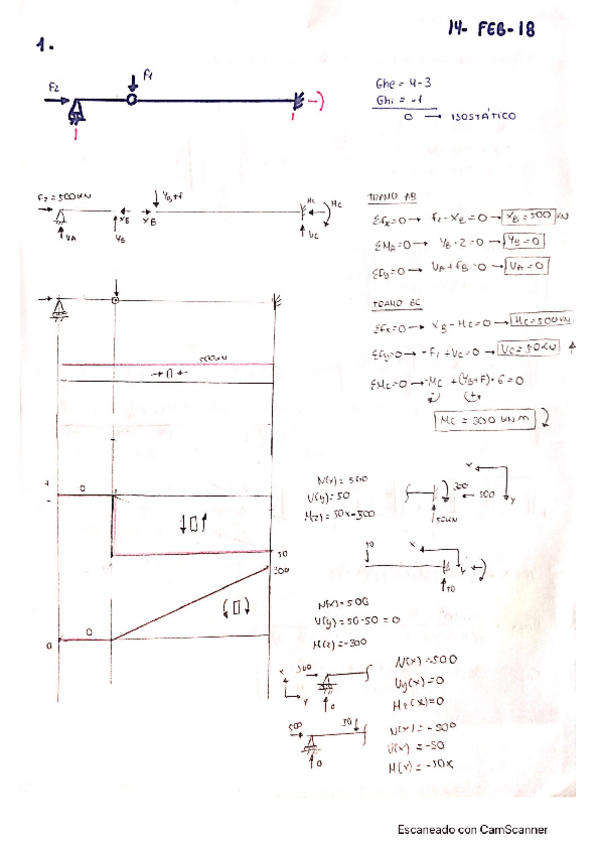 14- FEB-18
1.
F1
F2
Ghe = 4-3
Ghi = -1
0 → ISOSTÁTICO
F2=500KN
YB+F
XB
XB
VA
YB
HC
MC
VC
TRAMO AB
ΣFx=0 → F2-XB=0 → XB=500 KN
ΣMA=0 → YB·2=0 → YB=0
ΣFy=0 → VA+FB=0 → VA=0
TRAMO BC
ΣFx=0 → XB-HC=0 → HC=500KN
ΣFy=0 → -F1+VC=0 → VC=50KN ↑
ΣMC=0 → -MC+(YB+F)·6=0
MC = 300 KNm
500KN
+
-
0
50
300
0
0
N(x)=500
V(y)=50
M(z)=50x-300
x
y
300
500
50KN
50
x
y
50
N(x)=500
V(y)=50-50=0
M(z)=-300
x
y
500
0
N(x)=500
Vy(x)=0
Mz(x)=0
500
50
0
N(x)=-500
V(x)=-50
M(x)=-50x
Escaneado con CamScanner